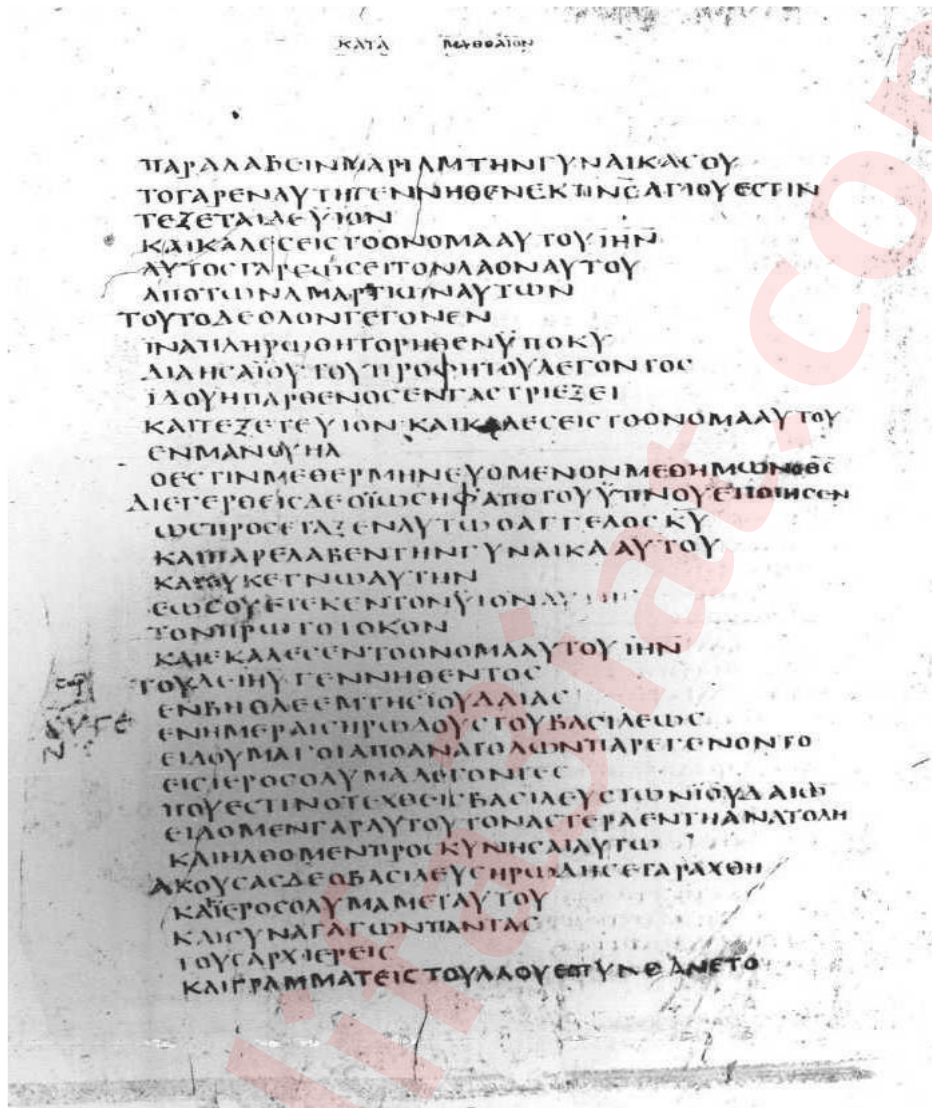 ΚΑΤΑ ΜΑΘΘΑΙΟΝ
ΠΑΡΑΛΑΒΕΙΝΜΑΡΙΑΜΤΗΝΓΥΝΑΙΚΑСΟΥ
ΤΟΓΑΡΕΝΑΥΤΗΓΕΝΝΗΘΕΝΕΚΠΝСΑΓΙΟΥΕСΤΙΝ
ΤΕΞΕΤΑΙΔΕΥΙΟΝ
ΚΑΙΚΑΛΕСΕΙСΤΟΟΝΟΜΑΑΥΤΟΥΙΗΝ
ΑΥΤΟСΓΑΡСΩСΕΙΤΟΝΛΑΟΝΑΥΤΟΥ
ΑΠΟΤΩΝΑΜΑΡΤΙΩΝΑΥΤΩΝ
ΤΟΥΤΟΔΕΟΛΟΝΓΕΓΟΝΕΝ
ΙΝΑΠΛΗΡΩΘΗΤΟΡΗΘΕΝΥΠΟΚΥ
ΔΙΑΗСΑΙΟΥΤΟΥΠΡΟΦΗΤΟΥΛΕΓΟΝΤΟС
ΙΔΟΥΗΠΑΡΘΕΝΟСΕΝΓΑСΤΡΙΕΞΕΙ
ΚΑΙΤΕΞΕΤΕΥΙΟΝΚΑΙΚΑΛΕСΕΙСΤΟΟΝΟΜΑΑΥΤΟΥ
ΕΝΜΑΝΟΥΗΛ
ΟΕСΤΙΝΜΕΘΕΡΜΗΝΕΥΟΜΕΝΟΝΜΕΘΗΜΩΝΟΘС
ΔΙΕΓΕΡΘΕΙСΔΕΟΪΩСΗΦΑΠΟΤΟΥΫΠΝΟΥΕΠΟΙΗСΕΝ
ΩСΠΡΟСΕΤΑΞΕΝΑΥΤΩΟΑΓΓΕΛΟСΚΥ
ΚΑΙΠΑΡΕΛΑΒΕΝΤΗΝΓΥΝΑΙΚΑΑΥΤΟΥ
ΚΑΙΟΥΚΕΓΝΩΑΥΤΗΝ
ΕΩСΟΥΕΤΕΚΕΝΤΟΝΥΙΟΝΑΥΤΗС
ΤΟΝΠΡΩΤΟΤΟΚΟΝ
ΚΑΙΕΚΑΛΕСΕΝΤΟΟΝΟΜΑΑΥΤΟΥΙΗΝ
ΤΟΥΔΕΙΗΥΓΕΝΝΗΘΕΝΤΟС
ΕΝΒΗΘΛΕΕΜΤΗСΙΟΥΔΑΙΑС
ΕΝΗΜΕΡΑΙСΗΡΩΔΟΥСΤΟΥΒΑСΙΛΕΩС
ΕΙΔΟΥΜΑΓΟΙΑΠΟΑΝΑΤΟΛΩΝΠΑΡΕΓΕΝΟΝΤΟ
ΕΙСΙΕΡΟСΟΛΥΜΑΛΕΓΟΝΤΕС
ΠΟΥΕСΤΙΝΟΤΕΧΘΕΙСΒΑСΙΛΕΥСΤΩΝΙΟΥΔΑΙΩ
ΕΙΔΟΜΕΝΓΑΡΑΥΤΟΥΤΟΝΑСΤΕΡΑΕΝΤΗΑΝΑΤΟΛΗ
ΚΑΙΗΛΘΟΜΕΝΠΡΟСΚΥΝΗСΑΙΑΥΤΩ
ΑΚΟΥСΑСΔΕΟΒΑСΙΛΕΥСΗΡΩΔΗСΕΤΑΡΑΧΘΗ
ΚΑΙΙΕΡΟСΟΛΥΜΑΜΕΤΑΥΤΟΥ
ΚΑΙСΥΝΑΓΑΓΩΝΠΑΝΤΑС
ΤΟΥСΑΡΧΙΕΡΕΙС
ΚΑΙΓΡΑΜΜΑΤΕΙСΤΟΥΛΑΟΥΕΠΥΝΘΑΝΕΤΟ